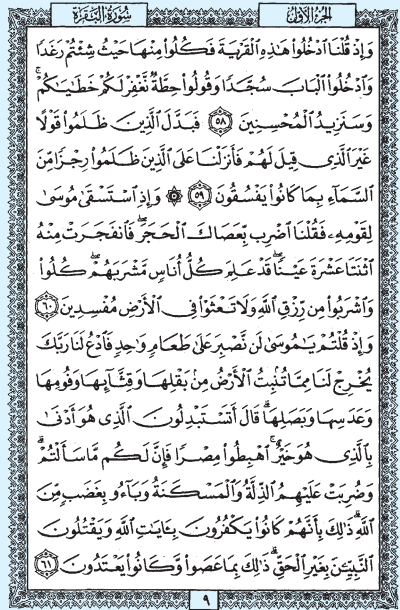 سُورَةُ البَقَرَةِ
الجُزْءُ الأَوَّلُ
وَإِذْ قُلْنَا ٱدْخُلُوا۟ هَٰذِهِ ٱلْقَرْيَةَ فَكُلُوا۟ مِنْهَا حَيْثُ شِئْتُمْ رَغَدًا
وَٱدْخُلُوا۟ ٱلْبَابَ سُجَّدًا وَقُولُوا۟ حِطَّةٌ نَّغْفِرْ لَكُمْ خَطَٰيَٰكُمْ ۚ
وَسَنَزِيدُ ٱلْمُحْسِنِينَ ٥٨ فَبَدَّلَ ٱلَّذِينَ ظَلَمُوا۟ قَوْلًا
غَيْرَ ٱلَّذِى قِيلَ لَهُمْ فَأَنزَلْنَا عَلَى ٱلَّذِينَ ظَلَمُوا۟ رِجْزًا مِّنَ
ٱلسَّمَآءِ بِمَا كَانُوا۟ يَفْسُقُونَ ٥٩ ۞ وَإِذِ ٱسْتَسْقَىٰ مُوسَىٰ
لِقَوْمِهِۦ فَقُلْنَا ٱضْرِب بِّعَصَاكَ ٱلْحَجَرَ ۖ فَٱنفَجَرَتْ مِنْهُ
ٱثْنَتَا عَشْرَةَ عَيْنًا ۖ قَدْ عَلِمَ كُلُّ أُنَاسٍ مَّشْرَبَهُمْ ۖ كُلُوا۟
وَٱشْرَبُوا۟ مِن رِّزْقِ ٱللَّهِ وَلَا تَعْثَوْا۟ فِى ٱلْأَرْضِ مُفْسِدِينَ ٦٠
وَإِذْ قُلْتُمْ يَٰمُوسَىٰ لَن نَّصْبِرَ عَلَىٰ طَعَامٍ وَٰحِدٍ فَٱدْعُ لَنَا رَبَّكَ
يُخْرِجْ لَنَا مِمَّا تُنۢبِتُ ٱلْأَرْضُ مِنۢ بَقْلِهَا وَقِثَّآئِهَا وَفُومِهَا
وَعَدَسِهَا وَبَصَلِهَا ۖ قَالَ أَتَسْتَبْدِلُونَ ٱلَّذِى هُوَ أَدْنَىٰ
بِٱلَّذِى هُوَ خَيْرٌ ۚ ٱهْبِطُوا۟ مِصْرًا فَإِنَّ لَكُم مَّا سَأَلْتُمْ ۗ
وَضُرِبَتْ عَلَيْهِمُ ٱلذِّلَّةُ وَٱلْمَسْكَنَةُ وَبَآءُو بِغَضَبٍ مِّنَ
ٱللَّهِ ۗ ذَٰلِكَ بِأَنَّهُمْ كَانُوا۟ يَكْفُرُونَ بِـَٔايَٰتِ ٱللَّهِ وَيَقْتُلُونَ
ٱلنَّبِيِّـۧنَ بِغَيْرِ ٱلْحَقِّ ۗ ذَٰلِكَ بِمَا عَصَوا۟ وَّكَانُوا۟ يَعْتَدُونَ ٦١
٩